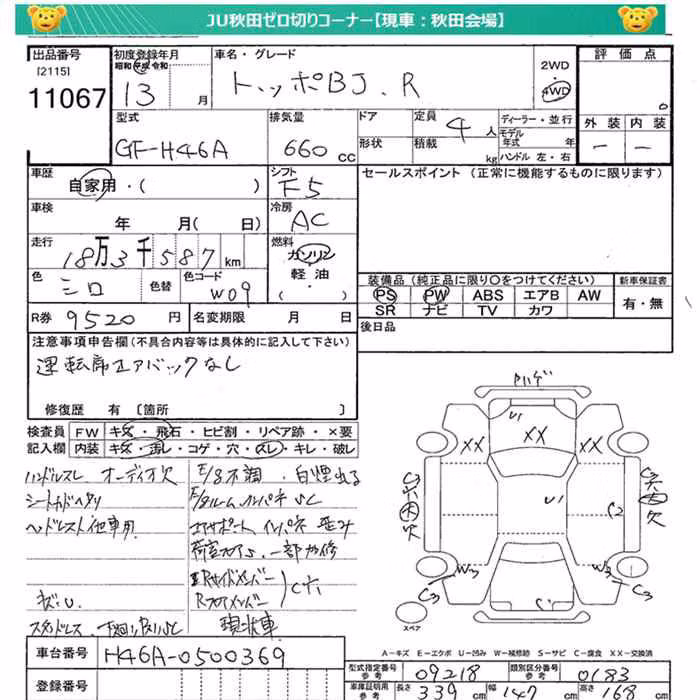 JU秋田ゼロ切りコーナー【現車：秋田会場】
出品番号
[2115]
11067
初度登録年月
昭和 平成 令和
13 月
車名・グレード
トッポBJ.R
2WD
4WD
評価点
0
外装 内装
ー ー
型式
GF-H46A
排気量
660 CC
ドア
形状
定員
4 人
積載
kg
ディーラー・並行
モデル
年式 年
ハンドル 左・右
車歴
自家用・( )
シフト
F5
セールスポイント（正常に機能するものに限ります）
車検
年 月( 日)
冷房
AC
走行
18万3千587km
燃料
ガソリン
軽油
( )
色
シロ
色替
色コード
W09
装備品（純正品に限り〇をつけてください）
PS PW ABS エアB AW
SR ナビ TV カワ
新車保証書
有・無
R券 9520 円
名変期限 月 日
後日品
注意事項申告欄(不具合内容等は具体的に記入して下さい)
運転席エアバックなし
修復歴 有 [箇所 ]
検査員
記入欄
FW キズ・飛石・ヒビ割・リペア跡・×要
内装 キズ・汚レ・コゲ・穴・スレ・キレ・破レ
ハンドルスレ オーディオ欠
シートカドヘタリ
ヘッドレスト他車用
キズ.U.
スタッドレス
E/g不調 白煙出る
現状車
U1
XX XX XX
U1
C2
W3 W3
C3 C3
スペア
A－キズ E－エクボ U－凹み W－補修跡 S－サビ C－腐食 XX－交換済
車台番号
H46A-0500369
登録番号
型式指定番号
参考
09218
類別区分番号
参考
0183
車庫証明用
参考
長さ 339 cm 幅 147 cm 高さ 168 cm